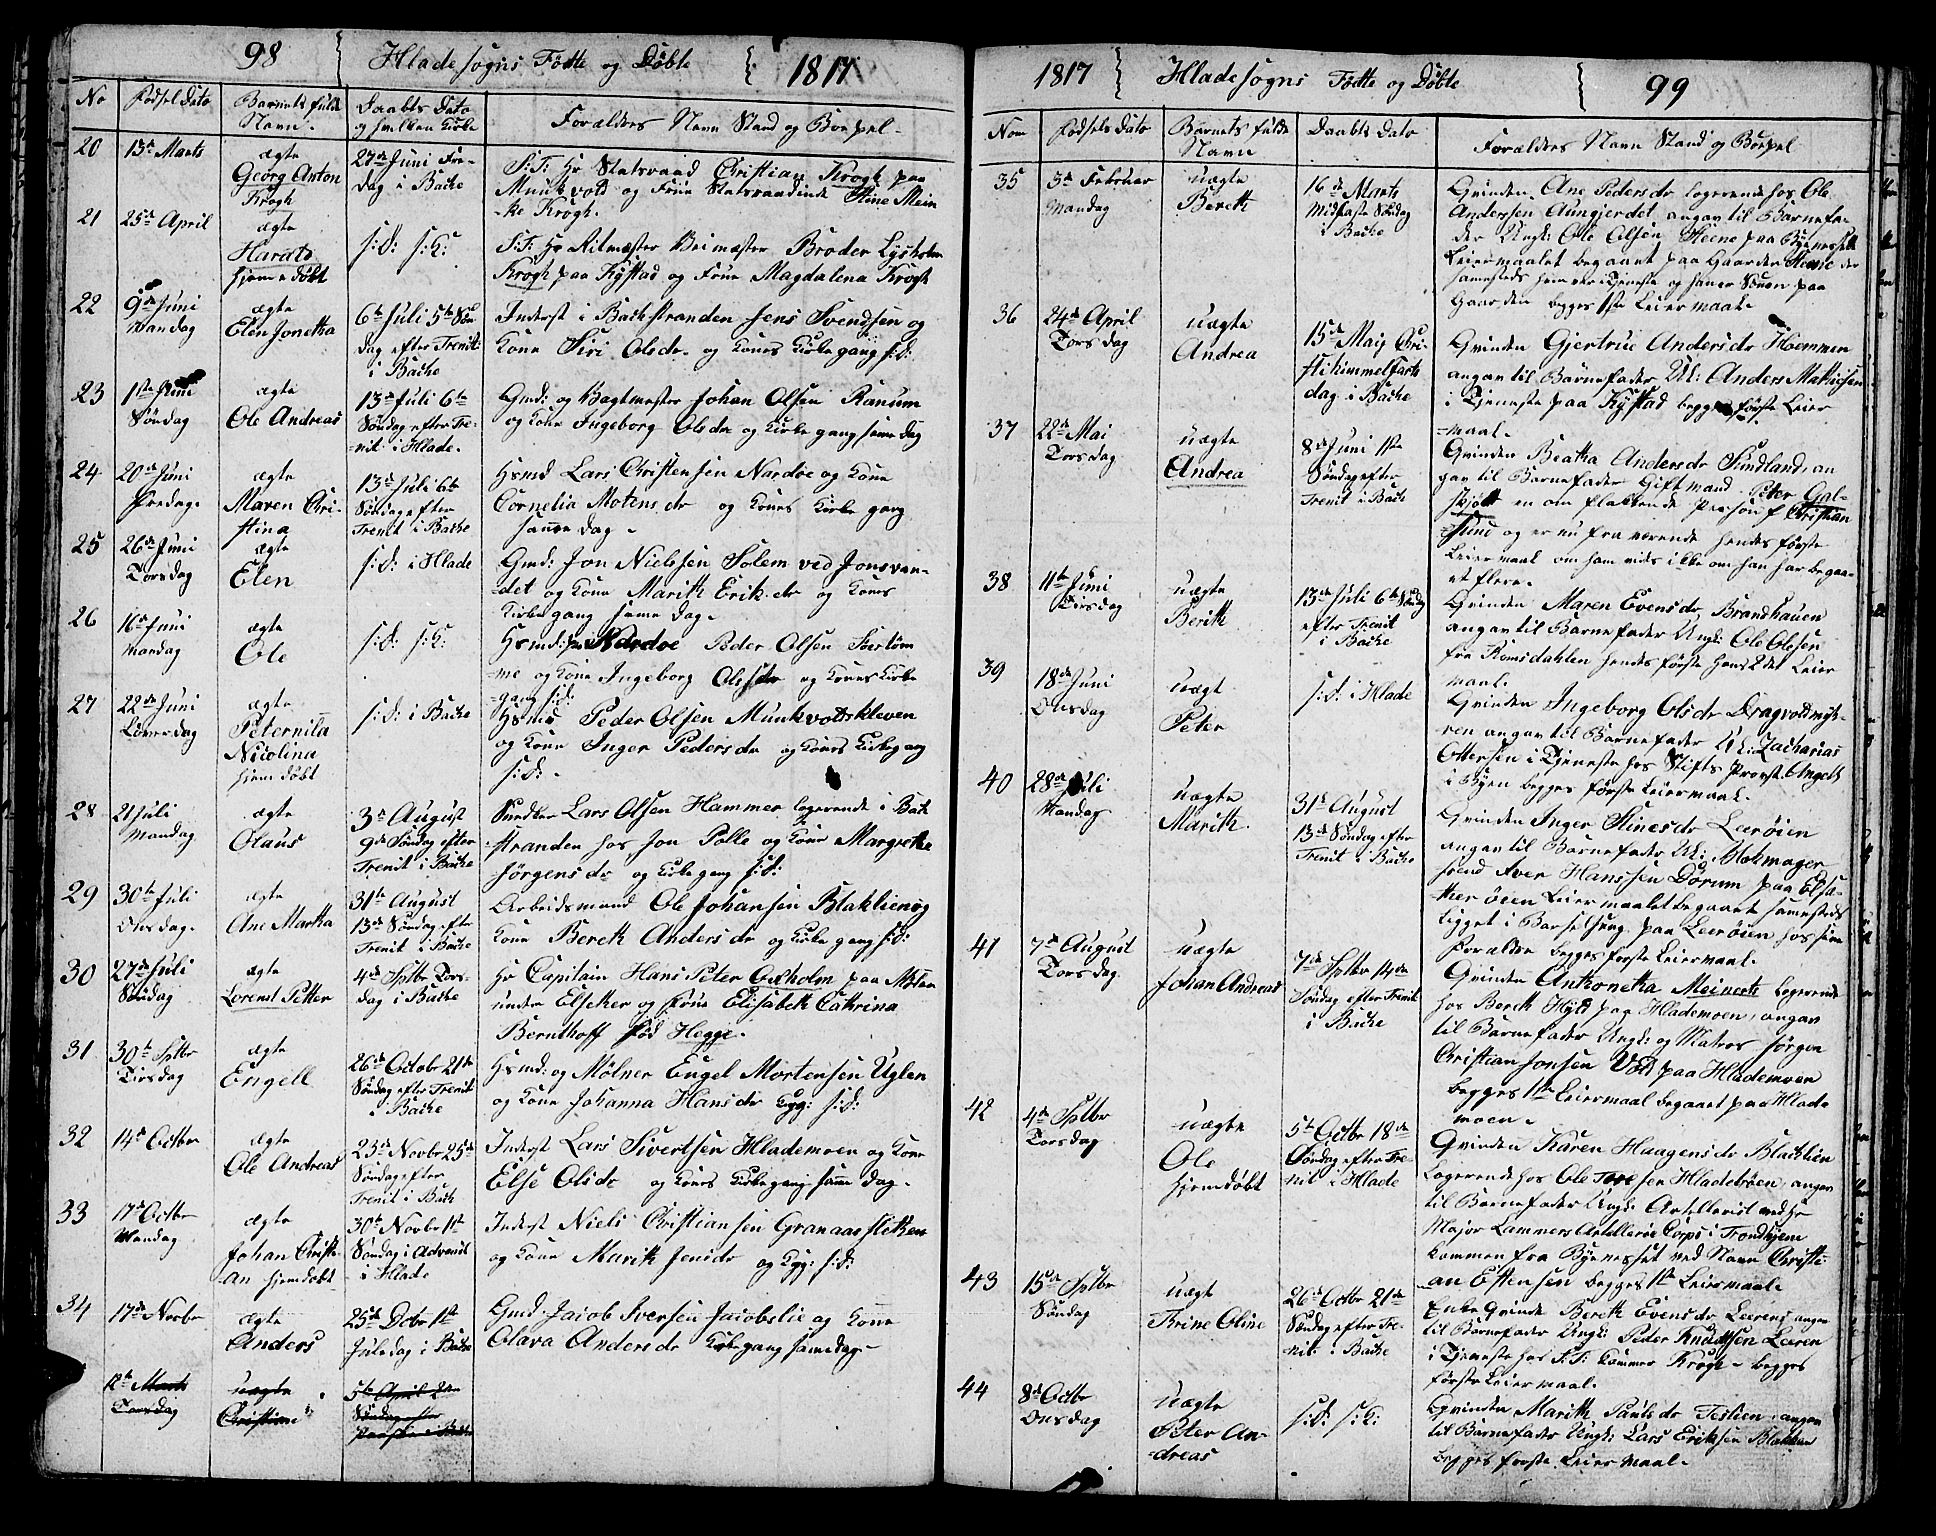 98 Hlade sogns Fødte og Døbte 1817
No Fødsel Dato Barnets fulde Navn. Daabts Dato og hvilken Kirke Forældres Navn Stand og Boepel
20 13de Marts ægte Georg Anton Krogh 27de Juni Fredag i Bache
S: T: Hr Statsraad Christian Krogh paa
Munkvold og Frue Statsraadinde Stine Mein
-ke Krogh.
21 25de April ægte Harald hjemedøbt s: d: s: K:
S: T: Hr Ritmester Broder Lysholm
Krogh paa Rystad og Frue Magdalena Krogh
22 9de Juni Mandag ægte Elen Jonetta 6te Juli 5te Søndag efter Trenit: i Bache
Inderst i Bachstranden Jens Svendsen og
Kone Siri Olsdr. og Kones Kirkegang s: d:
23 1ste Juni Søndag ægte Ole Andreas 13de Juli 6te Søndag efter Trenit: i Hlade.
Gmd: og Bagtmester Johan Olsen Ranum
og Kone Ingeborg Olsdr og Kirkegang samme dag
24 20de Juni Fredag. ægte Maren Christina 13de Juli 6te Søndag efter Trenit i Bache
Hsmd Lars Christensen Nardoe og Kone
Cornelia Motensdr og Kones Kirkegang
samme dag.
25 26de Juni Torsdag ægte Elen s: d: i Hlade
Gmd: Jon Nielsen Solem ved Jonsvan-
-det og Kone Marith Eriksdr og Kones
Kirkegang samme dag.
26 16de Juni Mandag ægte Ole s: d: s: K:
Hsmd: paa Nardoe Peder Olsen
og Kone Ingeborg Olsdr og Kones Kirke
gang s: d:
27 22de Juni Løverdag ægte Peternilla Nicolina hjemdøbt s: d: i Bache
Hsmd Peder Olsen Munkvoldskleven
og Kone Inger Pedersdr og Kones Kirkegang
s: d: -
28 21 Juli Mandag ægte Olaus 3de August 9de Søndag efter Trenit i Bache
Snedker Lars Olsen Hammer logerende i Bak
stranden hos Jon Polle og Kone Margrethe
Jørgensdr og Kirkegang s: d:
29 30te Juli Onsdag. ægte Ane Martha 31te August 13de Søndag efter Trenit i Bache
Arbeidsmand Ole Johansen Blaklien og
Kone Bereth Andersdr og Kirkegang s: d:
30 27de Juli Søndag ægte Lorend Petter 4de Sptbr Torsdag i Bache
Hr Capitain Hans Peter paa
under Elseker og Frue Elisabeth Cathrina
Bernthoff fød Hegge.
31 30te Sptbr Tirsdag ægte Engell 26de Octobr 21de Søndag efter Trenit i Bache
Hsmd: og Mølner Engel Mortensen Uglen
og Kone Johanna Hansdr Kgg: s: d:
32 14de Octbr ægte Ole Andreas 23de Novbr 25de Søndag efter Trenit i Bach
Inderst Lars Sivertsen Hlademoen og Kone
Else Olsdr og Kones Kirkegang samme dag.
33 17de Octbr Mandag ægte Johan Christian hjemdøbt 30te Novbr 1st Søndag i Advendt i Hlade
Inderst Niels Christiansen Granaasfletken
og Kone Marith Jensdr og Kgg: s: d:
34 17de Novbr ægte Anders 25de Dcbr 1st Juledag i Bache
Gmd: Jacob Iversen Jacobslie og Kone
Olava Andersdr Kirkegang samme dag.-
12te Marts Torsdag uægte Christine 5te April 2den Søndag efter Paaske i Bache
1817 Hlade sogns Fødte og Døbte 99
Nom Fødsels Dato Barnets fulde Navn Daabts Dato Forældres Navn Stand og Boepel
35 3de Februar Mandag uægte Bereth 16de Marts Midfaste Søndag i Bache
Qvinden Ane Pedersdr logerende hos Ole
Anderssen Aungjerdet, angav til Barnefa-
der Ungk: Ole Olsen Steene paa Byenesset
Leiermaalet begaaet paa Gaarden Steene der
sammesteds hun var i Tjeneste og han er Sønen paa
Gaarden begges 1ste Leiermaal.
36 24de April Torsdag uægte Andrea 15de Maij Christihimmelfarts dag i Bache
Qvinden Gjertrue Andersdr Hoemmen
angav til Barnefader Uk: Anders Mathisen
i Tjeneste paa Rystad begges første Leier
-maal.
37 22de Mai Torsdag uægte Andrea 8de Juni 1ste Søndag efter Trenit i Bach
Qvinden Beatha Andersdr Sundland, an
gav til Barnefader Gift mand Peter Gal-
skjøtt en om flakkende Person f Christian
-sund og er nu fraværende hendes første
Leiermaal om ham vids ikke om han har begaa-
et flere.
38 11te Juni Tirsdag uægte Berith 13de Juli 6te Søndag efter Trenit i Bache
Qvinden Maren Evensdr Brandhauen
angav til Barnefader Ungk: Ole Olsen
fra Romsdahlen hendes første hans 2det Leier
maal.
39 18de Juni Onsdag uægt Peter s: d: i Hlade
Qvinden Ingeborg Olsdr Dragvoldmyh-
ren angav til Barnefader Uk: Zacharias
Ottersen i Tjeneste hos Stifts Provst Angell
i Byen begges første Leiermaal.
40 28de Juli Mandag uægte Marith. 31te August 13de Søndag efter Trenit i Bache
Qvinden Inger Stinesdr Leerøien
angav til Barnefader Uk: Blokmager
svend Aver Hanssen Dørum paa Elsa-
ther øien Leiermaalet begaaet sammesteds
ligget i Barselseng paa Leerøien hos sine
Forældre begges første Leiermaal.
41 7de August Torsdag. uægte Johan Andreas 7de Sptbr 14de Søndag efter Trenit i Bache
Qvinden Anthonetha Meinertz logerende
hos Bereth Hyld paa Hlademoen, angav
til Barnefader Ungk: og Matros Jørgen
Christian Jonsen Vold paa Hlademoen
begges 1ste Leiermaal begaaet paa Hlade
moen.
42 4de Sptbr Torsdag uægte Ole hjemdøbt 5te Octbr 18de Søndag efter Trenit i Hlade
Qvinden Karen Haagensdr Blacklien
Logerende hos Ole Toresen Hladebøen, angav
til Barnefader Ungk: Artellerist ved Hr
Major Lammers Artellerie Corps i Trondhjem
kommen fra Byenesset ved Navn Christi-
an Estensen begges 1ste Leiermaal.
43 15de Sptbr Søndag uægt Trine Oline 26de Octbr 21de Søndag efter Trenit: i Bache
Enke Qvinde Bereth Evensdr Leerens angav
til Barnefader Ungk: Peder Knudtsen Leeren
i Tjeneste hos S: T: Kammer Krogh - begges
første Leiermaal.
44 8de Octbr Onsdag uægte Peter Andreas s: d: s: K:
Qvinden Marith Paulsdr Testien, angav
til Barnefader Ungk: Lars Eriksen Blaklien
begges første Leiermaal.